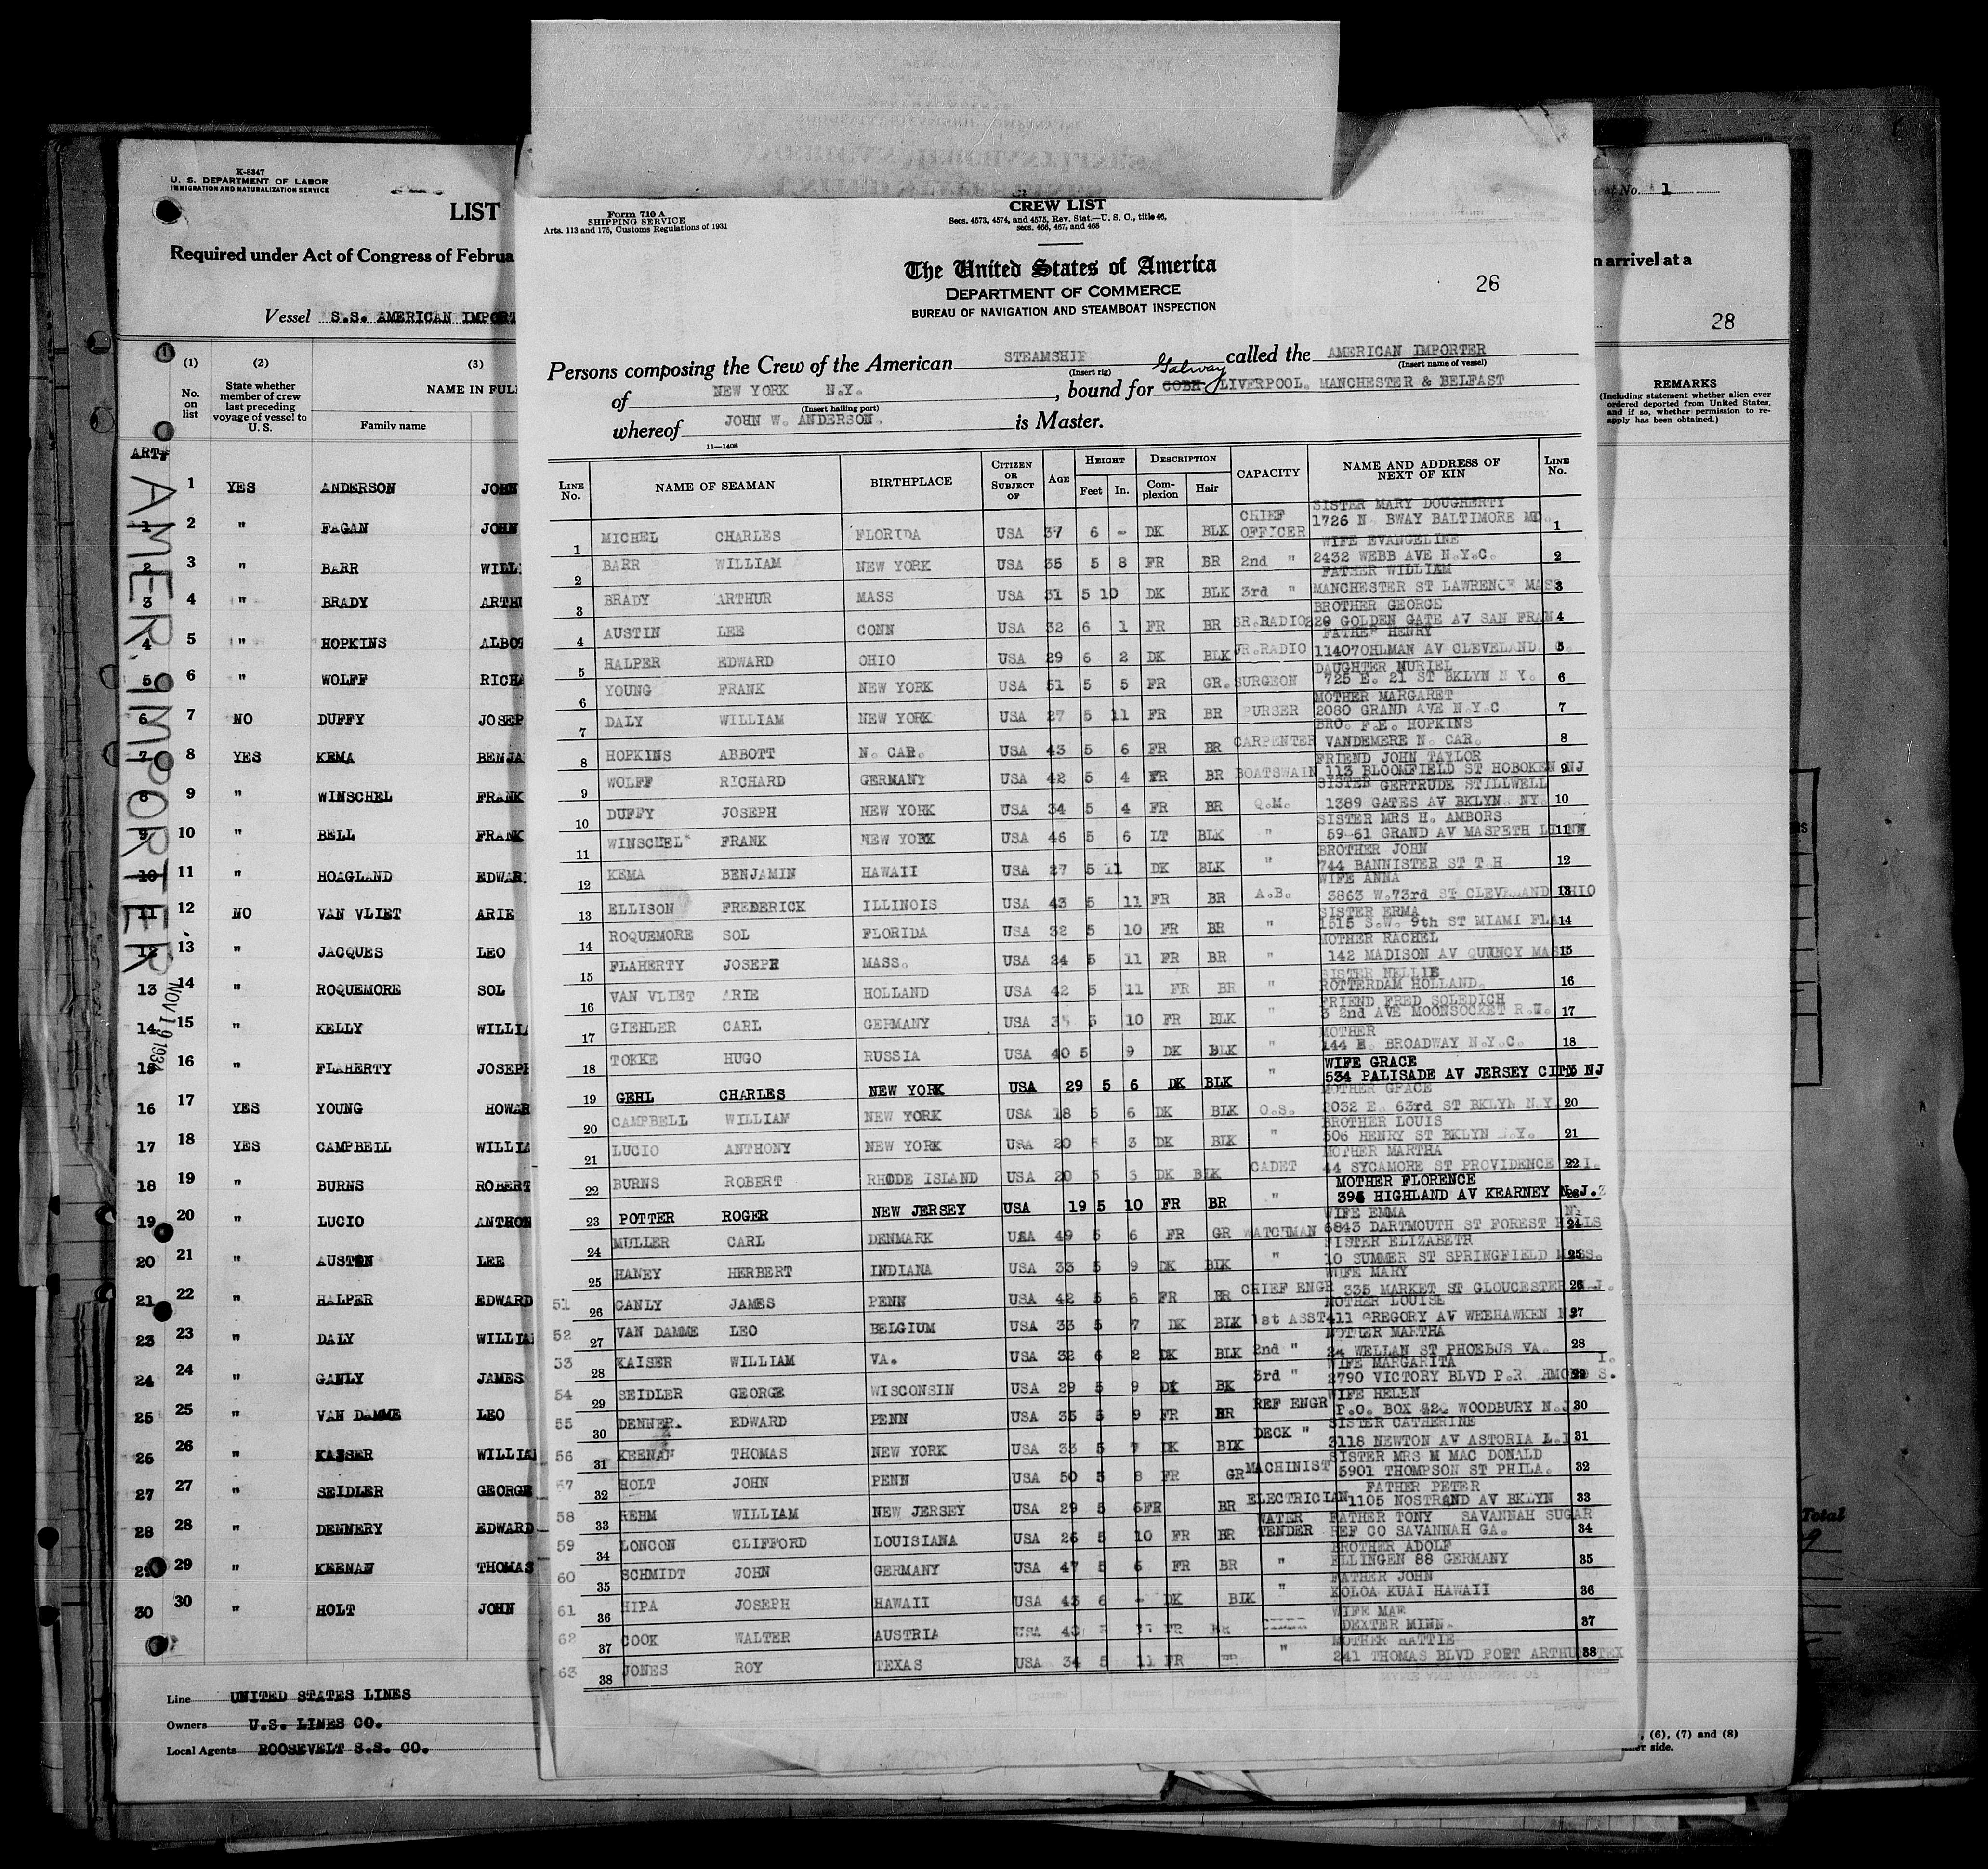 K-8347
U. S. DEPARTMENT OF LABOR
IMMIGRATION AND NATURALIZATION SERVICE
LIST
Required under Act of Congress of Februa
Vessel S.S. AMERICAN IMPORT
(1) (2) (3)
No. on list
State whether member of crew last preceding voyage of vessel to U. S.
NAME IN FULL
Family name
ART
AMER. IMPORTER
NOV 19 1934
1 YES ANDERSON JOHN
1 2 " FAGAN JOHN
2 3 " BARR WILLI
3 4 " BRADY ARTHU
4 5 " HOPKINS ALBOT
5 6 " WOLFF RICHA
6 7 NO DUFFY JOSEP
7 8 YES KEMA BENJA
8 9 " WINSCHEL FRANK
9 10 " BELL FRANK
10 11 " HOAGLAND EDWAR
11 12 NO VAN VLIET ARIE
12 13 " JACQUES LEO
13 14 " ROQUEMORE SOL
14 15 " KELLY WILLIA
15 16 " FLAHERTY JOSEPH
16 17 YES YOUNG HOWAR
17 18 YES CAMPBELL WILLIA
18 19 " BURNS ROBERT
19 20 " LUCIO ANTHON
20 21 " AUSTON LEE
21 22 " HALPER EDWARD
23 23 " DALY WILLIAM
24 24 " GANLY JAMES
25 25 " VAN DAMME LEO
26 26 " KAISER WILLIAM
27 27 " SEIDLER GEORGE
28 28 " DENNERY EDWARD
29 29 " KEENAN THOMAS
30 30 " HOLT JOHN
Line UNITED STATES LINES
Owners U.S. LINES CO.
Local Agents ROOSEVELT S.S. CO.
Form 710 A
SHIPPING SERVICE
Arts. 113 and 175, Customs Regulations of 1931
CREW LIST
Secs. 4573, 4574, and 4575, Rev. Stat.—U. S. C., title 46,
secs. 466, 467, and 468
The United States of America
DEPARTMENT OF COMMERCE
BUREAU OF NAVIGATION AND STEAMBOAT INSPECTION
26
Persons composing the Crew of the American STEAMSHIP called the AMERICAN IMPORTER
(Insert rig) (Insert name of vessel)
Galway
of NEW YORK N.Y., bound for COBH LIVERPOOL. MANCHESTER & BELFAST
(Insert hailing port)
whereof JOHN W. ANDERSON. is Master.
11—1408
LINE No. NAME OF SEAMAN BIRTHPLACE CITIZEN OR SUBJECT OF AGE HEIGHT Feet In. DESCRIPTION Complexion Hair CAPACITY NAME AND ADDRESS OF NEXT OF KIN LINE No.
1 MICHEL CHARLES FLORIDA USA 37 6 - DK BLK CHIEF OFFICER SISTER MARY DOUGHERTY 1726 N. BWAY BALTIMORE MD. 1
2 BARR WILLIAM NEW YORK USA 35 5 8 FR BR 2nd " WIFE EVANGELINE 2432 WEBB AVE N.Y.C. 2
3 BRADY ARTHUR MASS USA 31 5 10 DK BLK 3rd " FATHER WILLIAM MANCHESTER ST LAWRENCE MASS 3
4 AUSTIN LEE CONN USA 32 6 1 FR BR SR.RADIO BROTHER GEORGE 220 GOLDEN GATE AV SAN FRAN 4
5 HALPER EDWARD OHIO USA 29 6 2 DK BLK JR.RADIO FATHER HENRY 11407OHLMAN AV CLEVELAND. O. 5
6 YOUNG FRANK NEW YORK USA 51 5 5 FR GR. SURGEON DAUGHTER MURIEL 725 E. 21 ST BKLYN N Y. 6
7 DALY WILLIAM NEW YORK USA 27 5 11 FR BR PURSER MOTHER MARGARET 2080 GRAND AVE N.Y.C 7
8 HOPKINS ABBOTT N. CAR. USA 43 5 6 FR BR CARPENTER BRO. F.E. HOPKINS VANDEMERE N. CAR. 8
9 WOLFF RICHARD GERMANY USA 42 5 4 FR BR BOATSWAIN FRIEND JOHN TAYLOR 113 BLOOMFIELD ST HOBOKEN NJ 9
10 DUFFY JOSEPH NEW YORK USA 34 5 4 FR BR Q.M. SISTER GERTRUDE STILLWELL 1389 GATES AV BKLYN NY 10
11 WINSCHEL FRANK NEW YORK USA 46 5 6 LT BLK " SISTER MRS H. AMBORS 59-61 GRAND AV MASPETH 11
12 KEMA BENJAMIN HAWAII USA 27 5 11 DK BLK " BROTHER JOHN 744 BANNISTER ST T H 12
13 ELLISON FREDERICK ILLINOIS USA 43 5 11 FR BR A.B. WIFE ANNA 3863 W.73rd ST CLEVELAND OHIO 13
14 ROQUEMORE SOL FLORIDA USA 32 5 10 FR BR " SISTER ERMA 1515 S.W. 9th ST MIAMI FLA 14
15 FLAHERTY JOSEPH MASS. USA 24 5 11 FR BR " MOTHER RACHEL 142 MADISON AV QUINCY MAS 15
16 VAN VLIET ARIE HOLLAND USA 42 5 11 FR BR " SISTER NELLIE ROTTERDAM HOLLAND. 16
17 GIEHLER CARL GERMANY USA 35 5 10 FR BLK " FRIEND FRED SOLEDICH 3 2nd AVE MOONSOCKET R.H. 17
18 TOKKE HUGO RUSSIA USA 40 5 9 DK BLK " MOTHER 144 E. BROADWAY N.Y.C. 18
19 GEHL CHARLES NEW YORK USA 29 5 6 DK BLK " WIFE GRACE 534 PALISADE AV JERSEY CITY NJ
20 CAMPBELL WILLIAM NEW YORK USA 18 5 6 DK BLK O.S. MOTHER GRACE 2032 E. 63rd ST BKLYN N.Y. 20
21 LUCIO ANTHONY NEW YORK USA 20 5 3 DK BLK " BROTHER LOUIS 506 HENRY ST BKLYN N.Y. 21
22 BURNS ROBERT RHODE ISLAND USA 20 5 3 DK BLK CADET MOTHER MARTHA 44 SYCAMORE ST PROVIDENCE 22
23 POTTER ROGER NEW JERSEY USA 19 5 10 FR BR " MOTHER FLORENCE 395 HIGHLAND AV KEARNEY N.J. 23
24 MULLER CARL DENMARK USA 49 5 6 FR GR WATCHMAN WIFE EMMA 6843 DARTMOUTH ST FOREST HILLS 24
25 HANEY HERBERT INDIANA USA 33 5 9 DK BLK " SISTER ELIZABETH 10 SUMMER ST SPRINGFIELD MASS. 25
51 26 CANLY JAMES PENN USA 42 5 6 FR BR CHIEF ENGR WIFE MARY 335 MARKET ST GLOUCESTER N.J. 26
52 27 VAN DAMME LEO BELGIUM USA 33 5 7 DK BLK 1st ASST MOTHER LOUISE 411 GREGORY AV WEEHAWKEN NJ 27
53 28 KAISER WILLIAM VA. USA 32 6 2 DK BLK 2nd " MOTHER MARTHA 24 WELLAN ST PHOEBUS VA. 28
54 29 SEIDLER GEORGE WISCONSIN USA 29 5 9 DK BK 3rd " WIFE MARGARITA 2790 VICTORY BLVD P.R. HMOND S. I. 29
55 30 DENNER. EDWARD PENN USA 35 5 9 FR BR REF ENGR WIFE HELEN P.O. BOX WOODBURY N.J 30
56 31 KEENAN THOMAS NEW YORK USA 33 5 7 DK BLK DECK " SISTER CATHERINE 3118 NEWTON AV ASTORIA L.I 31
57 32 HOLT JOHN PENN USA 50 5 8 FR GR MACHINIST SISTER MRS M MAC DONALD 5901 THOMPSON ST PHILA. 32
58 33 REHM WILLIAM NEW JERSEY USA 29 5 6 FR BR ELECTRICIAN FATHER PETER 1105 NOSTRAND AV BKLYN 33
59 34 LONCON CLIFFORD LOUISIANA USA 26 5 10 FR BR WATER TENDER FATHER TONY SAVANNAH SUGAR REF CO SAVANNAH GA. 34
60 35 SCHMIDT JOHN GERMANY USA 47 5 6 FR BR " BROTHER ADOLF ELLINGEN 88 GERMANY 35
61 36 HIPA JOSEPH HAWAII USA 43 6 - DK BLK " FATHER JOHN KOLOA KUAI HAWAII 36
62 37 COOK WALTER AUSTRIA USA FR WIFE MAE DEXTER MINN. 37
63 38 JONES ROY TEXAS USA 34 5 11 FR BR " MOTHER HATTIE 241 THOMAS BLVD PORT ARTHUR TEX 38
Sheet No. 1
n arrival at a
28
REMARKS
(Including statement whether alien ever ordered deported from United States, and if so, whether permission to reapply has been obtained.)
Total
, (6), (7) and (8)
side.